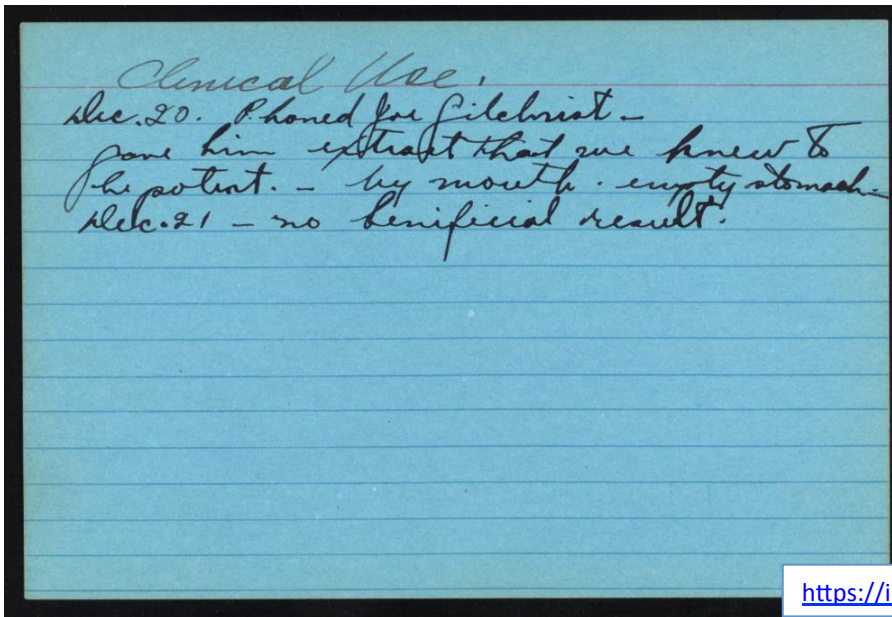 Clinical Use.
Dec. 20. Phoned Joe Gilchrist -
gave him extract that we knew to
be potent. - by mouth. empty stomach -
Dec. 21 - no benificial result.
https://i